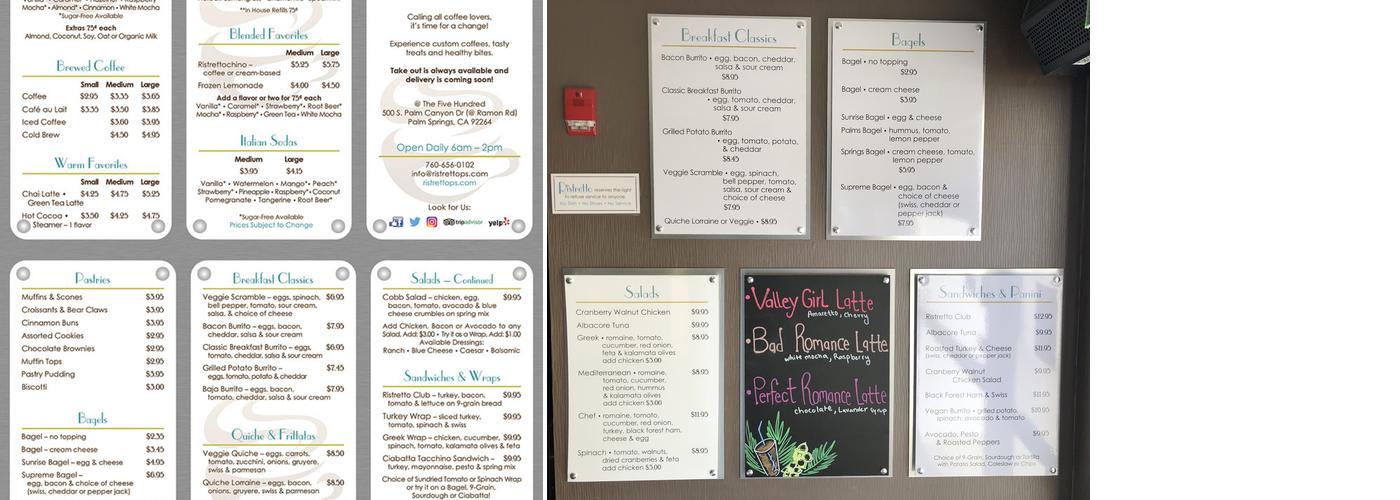 Mocha* • Almond* • Cinnamon • White Mocha
*Sugar-Free Available
Extras 75¢ each
Almond, Coconut, Soy, Oat or Organic Milk
Brewed Coffee
Small Medium Large
Coffee $2.95 $3.35 $3.65
Café au Lait $3.35 $3.50 $3.85
Iced Coffee $3.60 $3.95
Cold Brew $4.50 $4.95
Warm Favorites
Small Medium Large
Chai Latte • $4.25 $4.75 $5.25
Green Tea Latte
Hot Cocoa • $3.50 $4.25 $4.75
Steamer – 1 flavor
**In House Refills 75¢
Blended Favorites
Medium Large
Ristrettochino – $5.25 $5.75
coffee or cream-based
Frozen Lemonade $4.00 $4.50
Add a flavor or two for 75¢ each
Vanilla* • Caramel* • Strawberry* • Root Beer*
Mocha* • Raspberry* • Green Tea • White Mocha
Italian Sodas
Medium Large
$3.95 $4.15
Vanilla* • Watermelon • Mango* • Peach*
Strawberry* • Pineapple • Raspberry* • Coconut
Pomegranate • Tangerine • Root Beer*
*Sugar-Free Available
Prices Subject to Change
Calling all coffee lovers,
it's time for a change!
Experience custom coffees, tasty
treats and healthy bites.
Take out is always available and
delivery is coming soon!
@ The Five Hundred
500 S. Palm Canyon Dr (@ Ramon Rd)
Palm Springs, CA 92264
Open Daily 6am – 2pm
760-656-0102
info@ristrettops.com
ristrettops.com
Look for Us:
tripadvisor yelp
Pastries
Muffins & Scones $3.95
Croissants & Bear Claws $3.95
Cinnamon Buns $3.95
Assorted Cookies $2.95
Chocolate Brownies $2.95
Muffin Tops $2.95
Pastry Pudding $3.95
Biscotti $3.00
Bagels
Bagel – no topping $2.35
Bagel – cream cheese $3.45
Sunrise Bagel – egg & cheese $4.95
Supreme Bagel – $6.95
egg, bacon & choice of cheese
(swiss, cheddar or pepper jack)
Breakfast Classics
Veggie Scramble – eggs, spinach, $6.95
bell pepper, tomato, sour cream,
salsa, & choice of cheese
Bacon Burrito – eggs, bacon, $7.95
cheddar, salsa & sour cream
Classic Breakfast Burrito – eggs, $6.95
tomato, cheddar, salsa & sour cream
Grilled Potato Burrito – $7.45
eggs, tomato, potato & cheddar
Baja Burrito – eggs, bacon, $7.95
tomato, cheddar, salsa & sour cream
Quiche & Frittatas
Veggie Quiche – eggs, carrots, $8.50
tomato, zucchini, onions, gruyere,
swiss & parmesan
Quiche Lorraine – eggs, bacon, $8.50
onions, gruyere, swiss & parmesan
Salads – Continued
Cobb Salad – chicken, egg, $9.95
bacon, tomato, avocado & blue
cheese crumbles on spring mix
Add Chicken, Bacon or Avocado to any
Salad, Add: $3.00 • Try it as a Wrap, Add: $1.00
Available Dressings:
Ranch • Blue Cheese • Caesar • Balsamic
Sandwiches & Wraps
Ristretto Club – turkey, bacon, $9.95
tomato & lettuce on 9-grain bread
Turkey Wrap – sliced turkey, $9.95
tomato, spinach & swiss
Greek Wrap – chicken, cucumber, $9.95
spinach, tomato, kalamata olives & feta
Ciabatta Tacchino Sandwich – $9.95
turkey, mayonnaise, pesto & spring mix
Choice of Sundried Tomato or Spinach Wrap
or try it on a Bagel, 9-Grain,
Sourdough or Ciabatta!
Breakfast Classics
Bacon Burrito • egg, bacon, cheddar,
salsa & sour cream
$8.95
Classic Breakfast Burrito
• egg, tomato, cheddar,
salsa & sour cream
$7.95
Grilled Potato Burrito
• egg, tomato, potato,
& cheddar
$8.45
Veggie Scramble • egg, spinach,
bell pepper, tomato,
salsa, sour cream &
choice of cheese
$7.95
Quiche Lorraine or Veggie • $8.95
Bagels
Bagel • no topping
$2.95
Bagel • cream cheese
$3.95
Sunrise Bagel • egg & cheese
Palms Bagel • hummus, tomato,
lemon pepper
Springs Bagel • cream cheese, tomato,
lemon pepper
$5.95
Supreme Bagel • egg, bacon &
choice of cheese
(swiss, cheddar or
pepper jack)
$7.95
Ristretto reserves the right
to refuse service to anyone.
No Shirt • No Shoes • No Service
Salads
Cranberry Walnut Chicken $9.95
Albacore Tuna $9.95
Greek • romaine, tomato, $8.95
cucumber, red onion,
feta & kalamata olives
add chicken $3.00
Mediterranean • romaine, $8.95
tomato, cucumber,
red onion, hummus
& kalamata olives
add chicken $3.00
Chef • romaine, tomato, $11.95
cucumber, red onion,
turkey, black forest ham,
cheese & egg
Spinach • tomato, walnuts, $8.95
dried cranberries & feta
add chicken $3.00
•Valley Girl Latte
Amaretto, cherry
•Bad Romance Latte
white mocha, Raspberry
•Perfect Romance Latte
chocolate, Lavender syrup
Sandwiches & Panini
Ristretto Club $12.95
Albacore Tuna $9.95
Roasted Turkey & Cheese $11.95
(swiss, cheddar or pepper jack)
Cranberry Walnut $9.95
Chicken Salad
Black Forest Ham & Swiss $11.95
Vegan Burrito • grilled potato, $10.95
spinach, avocado & tomato
Avocado, Pesto $9.95
& Roasted Peppers
Choice of 9-Grain, Sourdough or Tortilla
with Potato Salad, Coleslaw or Chips